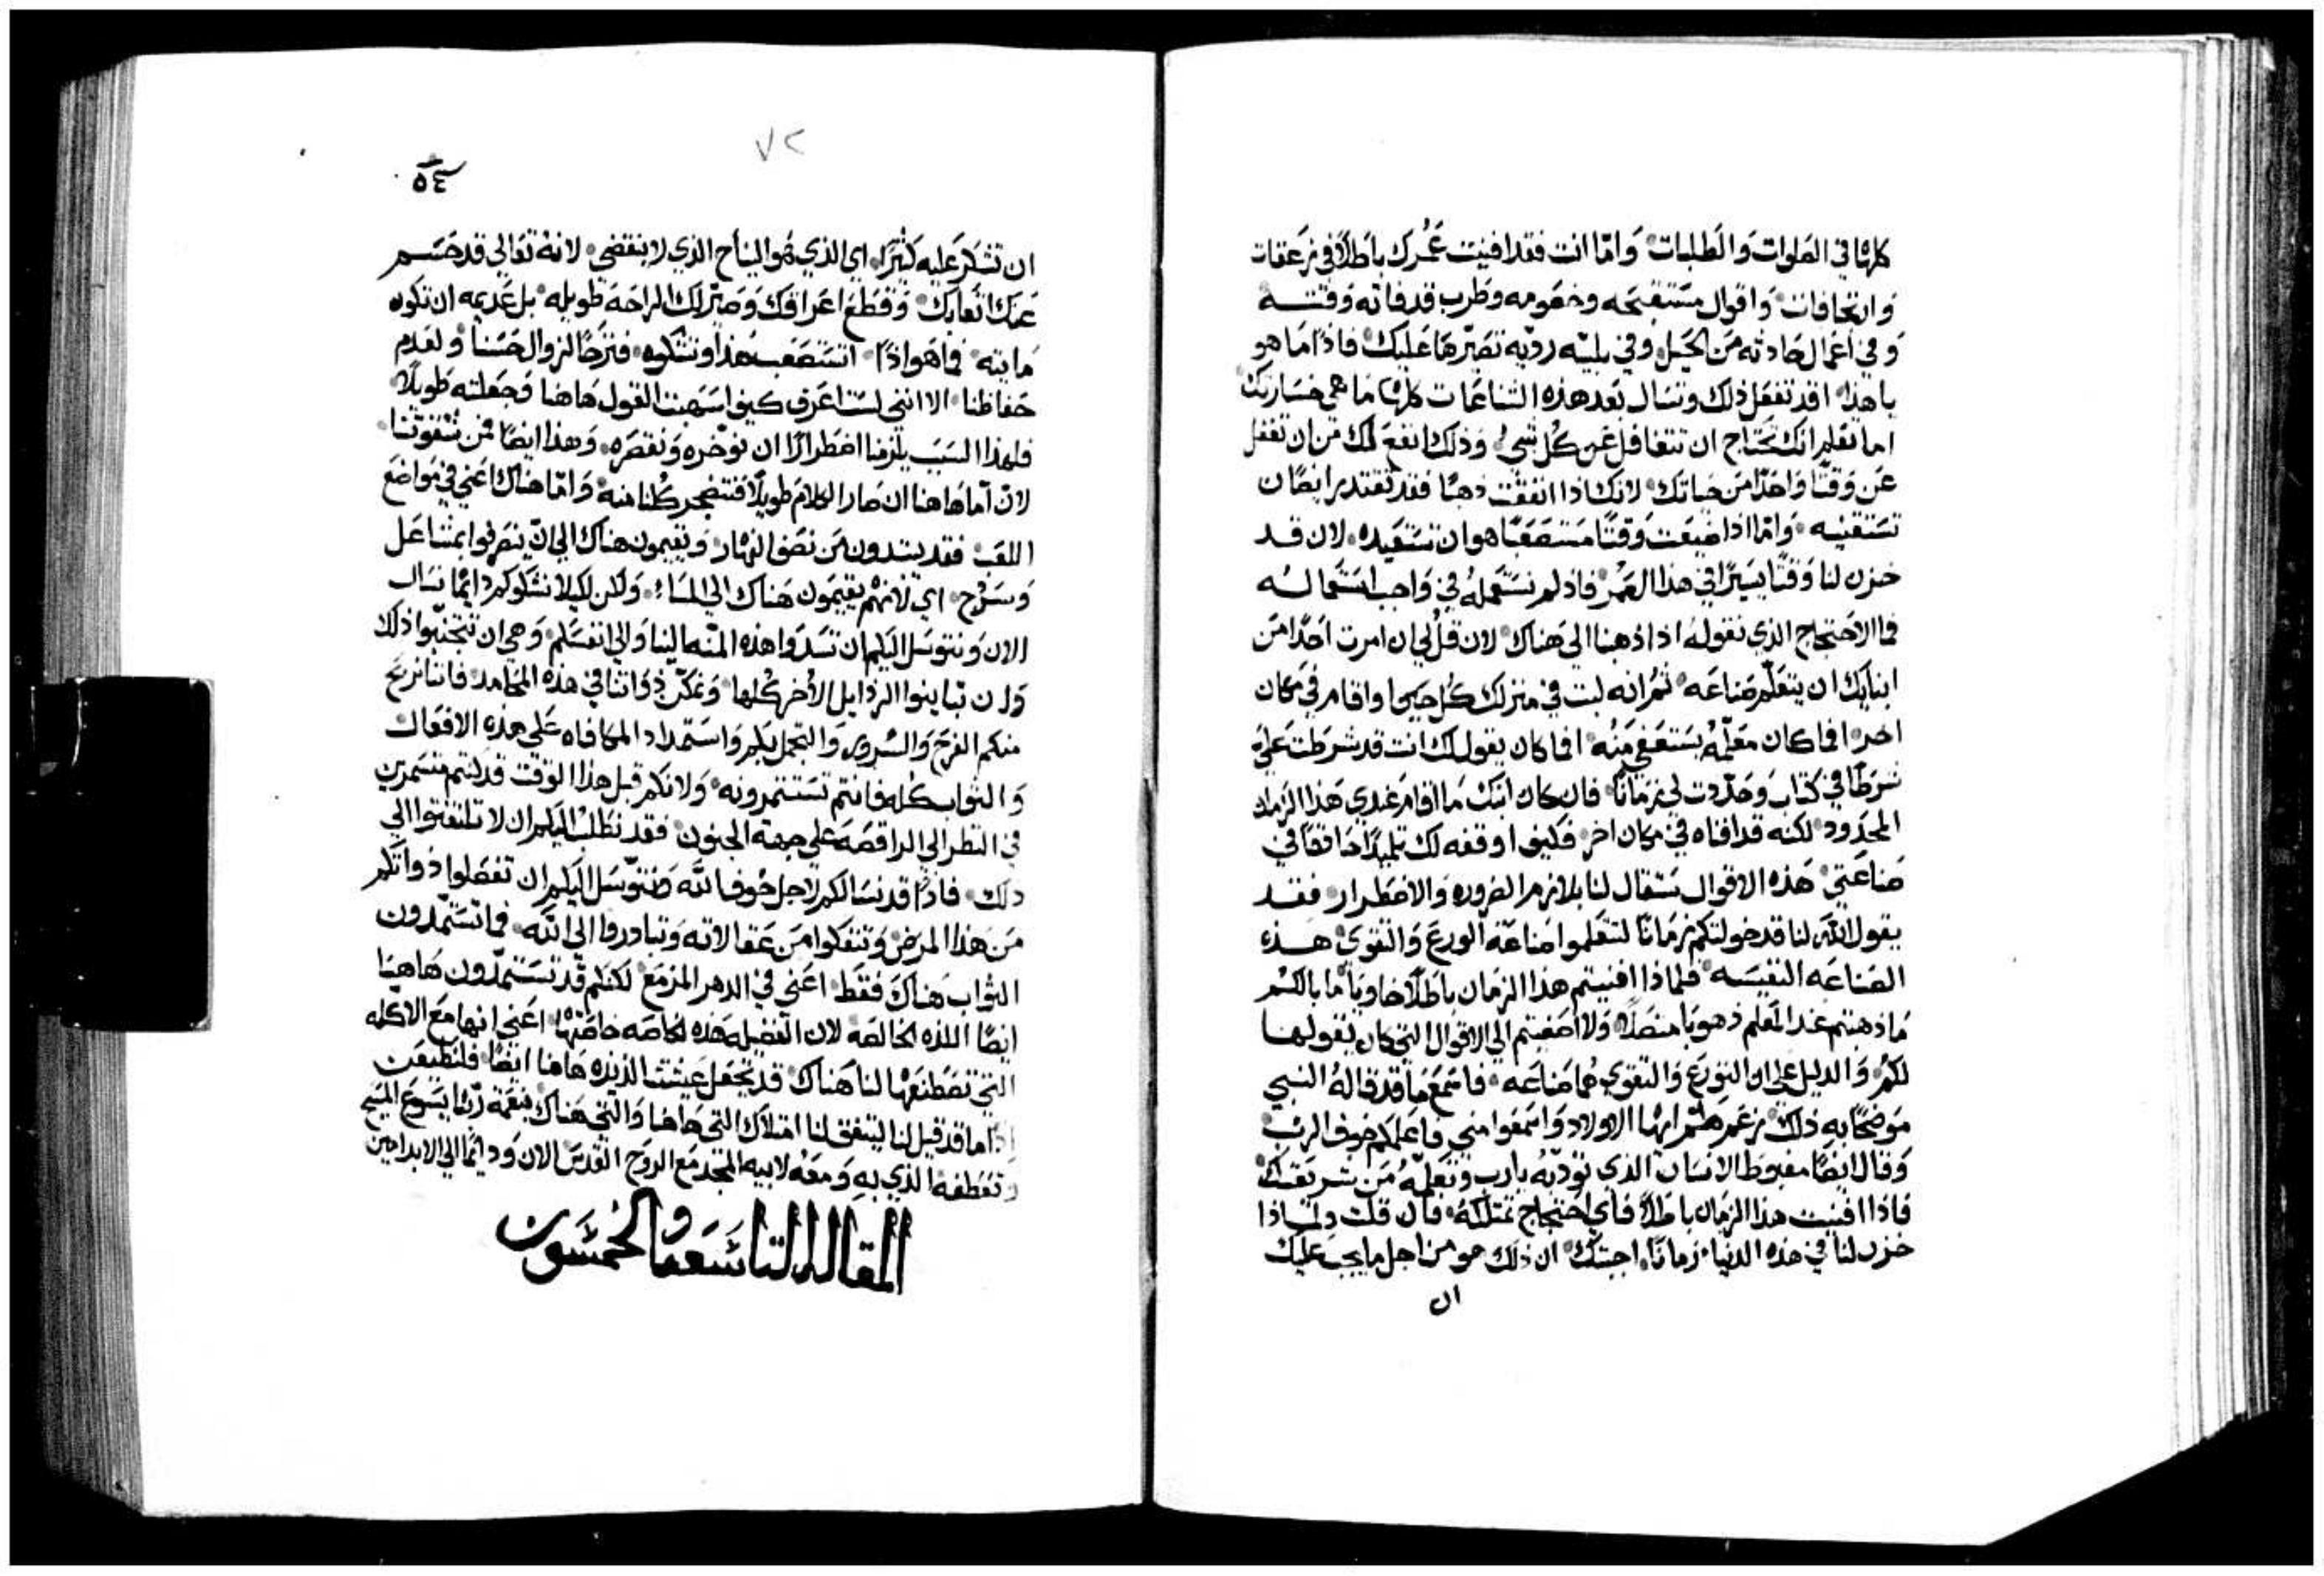 كلها في الصلوات والطلبات وَامّا انت فقد افنيت عُمرك باطلاً في زعقات
وارتجافات وَاقوال مستقبحه وخصومه وطرب قد فاته وَقتـه
وفي اعمال حادثه من الحيل وفي بليّه رديّه تصيّرها عليك فاذًا ما هو
يا هذا اقد تفعل ذلك وتسال بعد هذه الشناعات كلها ما هي خسارتك
اما تعلم انك تحتاج ان تتغافل عن كل شي وَذلك انفع لك من ان تغفل
عَن وَقتًا وَاحدًا من حياتك لانك اذا انفقت ذهبًا فقد تقتدر ايضًا ان
تستقنيه وَامّا اذا ضيعت وَقتًا مستصعبًا هو ان تستعيده لان قد
خزن لنا وَقتًا يسيرًا في هذا العمر فاذ لم نستعمله في وَاجب استعماله
فما الاحتجاج الذي نقوله اذا ذهبنا الي هناك لان قُل لي ان امرت احدًا من
ابنايك ان يتعلّم صناعه ثم انه لبث في منزلك كل حين او اقام في مكان
اخر افما كان معلّمه يستعفي منه افما كان يقول لك انت قد شرطت عليّ
شرطًا في كتاب وَحدّدت لي زمانًا فان كان ابنك ما اقام عندي هذا الزمان
المحدود لكنه قد افناه في مكان اخر فكيف اوقفه لك تلميذًا حاذقًا في
صناعتي هذه الاقوال ستقال لنا بلازم الضروره وَالاضطرار فقد
يقول الله لنا قد خولتكم زمانًا لتعلموا صناعة الورع وَالتقوي هذه
الصناعه النفيسه فلماذا افنيتم هذا الزمان باطلًا خاويًا ما بالكم
ما ذهبتم عند المعلم ذهوبًا متصلًا وَلا اصغيتم الي الاقوال التي كان يقولها
لكم وَالدليل علي ان التورع وَالتقوي هما صناعه فاسمع ما قد قاله النبي
موضحًا به ذلك زعم هلم ايها الاولاد وَاسمعوا مني فاعلمكم خوف الرب
وَقال ايضًا مغبوط الانسان الذي تودّبه يارب وتعلّمه من شريعتك
فاذا افنيت هذا الزمان باطلاً فاي احتجاج تمتلكه فان قلت ولماذا
خزن لنا في هذه الدنيا زمانًا اجبتك ان ذلك هو من اجل ما يجب عليك
ان
٧٢
٥٤
ان تشكر عليه كثيرًا اي الذي هو النياح الذي لا ينقضي لانه تعالي قد حسم
عنك اتعابك وَقطع اعراقك وَصيّر لك الراحة طويله بل عديمه ان تكون
مايته فما هو اذًا اتستصعب هذا وتشكوه
حفاظنا الا انني لست اعرف كيف اسهبت القول هاهنا وَجعلته طويلًا
فلهذا السبب يلزمنا اضطرارًا ان نوخّره وَنقصره وَهذا ايضًا من
لان اما هاهنا ان صار الكلام طويلًا فتضجر كلنا منه وَامّا هناك اعني في مواضع
اللعب فقد يبتدون من نصف النهار وَيقيمون هناك الي ان ينصرفوا بمشاعل
وَسرُج اي لانهم يقيمون هناك الي المساء وَلكن لكيلا نشكوكم دايمًا نسال
الان وَنتوسل اليكم ان تسدوا هذه المنّه الينا وَالي انفسكم وَهي ان تتجنبوا ذلك
وَان تباينوا الرذايل الاخر كلها وَنمكّن ذواتنا في هذه المحامد فاننا نربح
منكم الفرح وَالسرور وَالتجمل بكم وَاستمداد المكافاه علي هذه الافعال
وَالثواب كله فانتم تستثمرونه وَلانكم قبل هذا الوقت قد كنتم متسمرين
في النظر الي الراقصه علي جهة الجنون فقد نطلب اليكم ان لا تلتفتوا الي
ذلك فاذًا قد نسالكم لاجل خوف الله وَنتوسل اليكم ان تفصلوا ذواتكم
من هذا المرض وَتنفكوا من عقالاته وَتبادروا الي الله فما تستمدون
الثواب هناك فقط اعني في الدهر المزمع لكنكم قد تستمدون هاهنا
ايضًا اللذه الخالصه لان الفضيله هذه الخاصه خاصّتها اعني انها مع الاكله
التي تصطنعها لنا هناك قد تجعل عيشتنا لذيذه هاهنا ايضًا فلنطيعن
اذًا ما قد قيل لنا ليتفق لنا امتلاك التي هاهنا وَالتي هناك بنعمة ربّنا يسوع المسيح
وتعطفه الذي به وَمعه لابيه المجد مع الروح القدس الان وَدايمًا الي الابد امين
المقالة التاسعة والخمسون